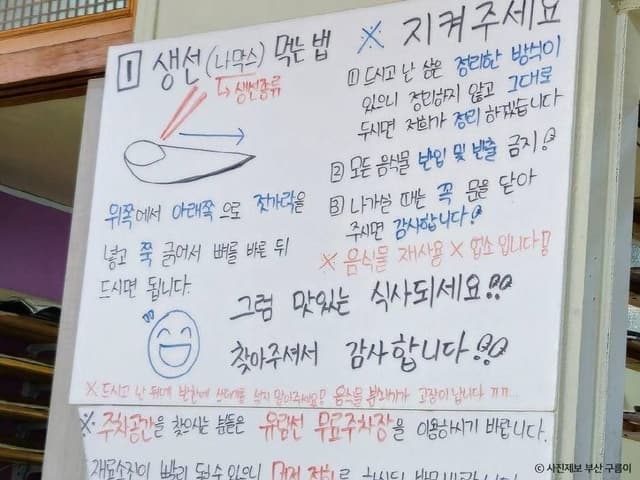 1 생선(나막스) 먹는 법
↳ 생선종류
위쪽에서 아래쪽으로 젓가락을
넣고 쭉 긁어서 뼈를 바른 뒤
드시면 됩니다.
※ 지켜주세요
① 드시고 난 상은 정리한 방식이
있으니 정리하지 않고 그대로
두시면 저희가 정리 하겠습니다
② 모든 음식물 반입 및 반출 금지!
③ 나가실 때는 꼭 문을 닫아
주시면 감사합니다!
※ 음식물 재사용 × 업소입니다!
그럼 맛있는 식사되세요!!
찾아주셔서 감사합니다!!
※ 드시고 난 뒤에 반찬에 쓰레기를 넣지 말아주세요! 음식물 분쇄기가 고장이 납니다 ㅠㅠ...
※ 주차공간을 찾으시는 분들은 유람선 무료주차장을 이용하시기 바랍니다.
재료소진이 빨리 될 수 있으니 먼저 전화
© 사진제보 부산 구름이